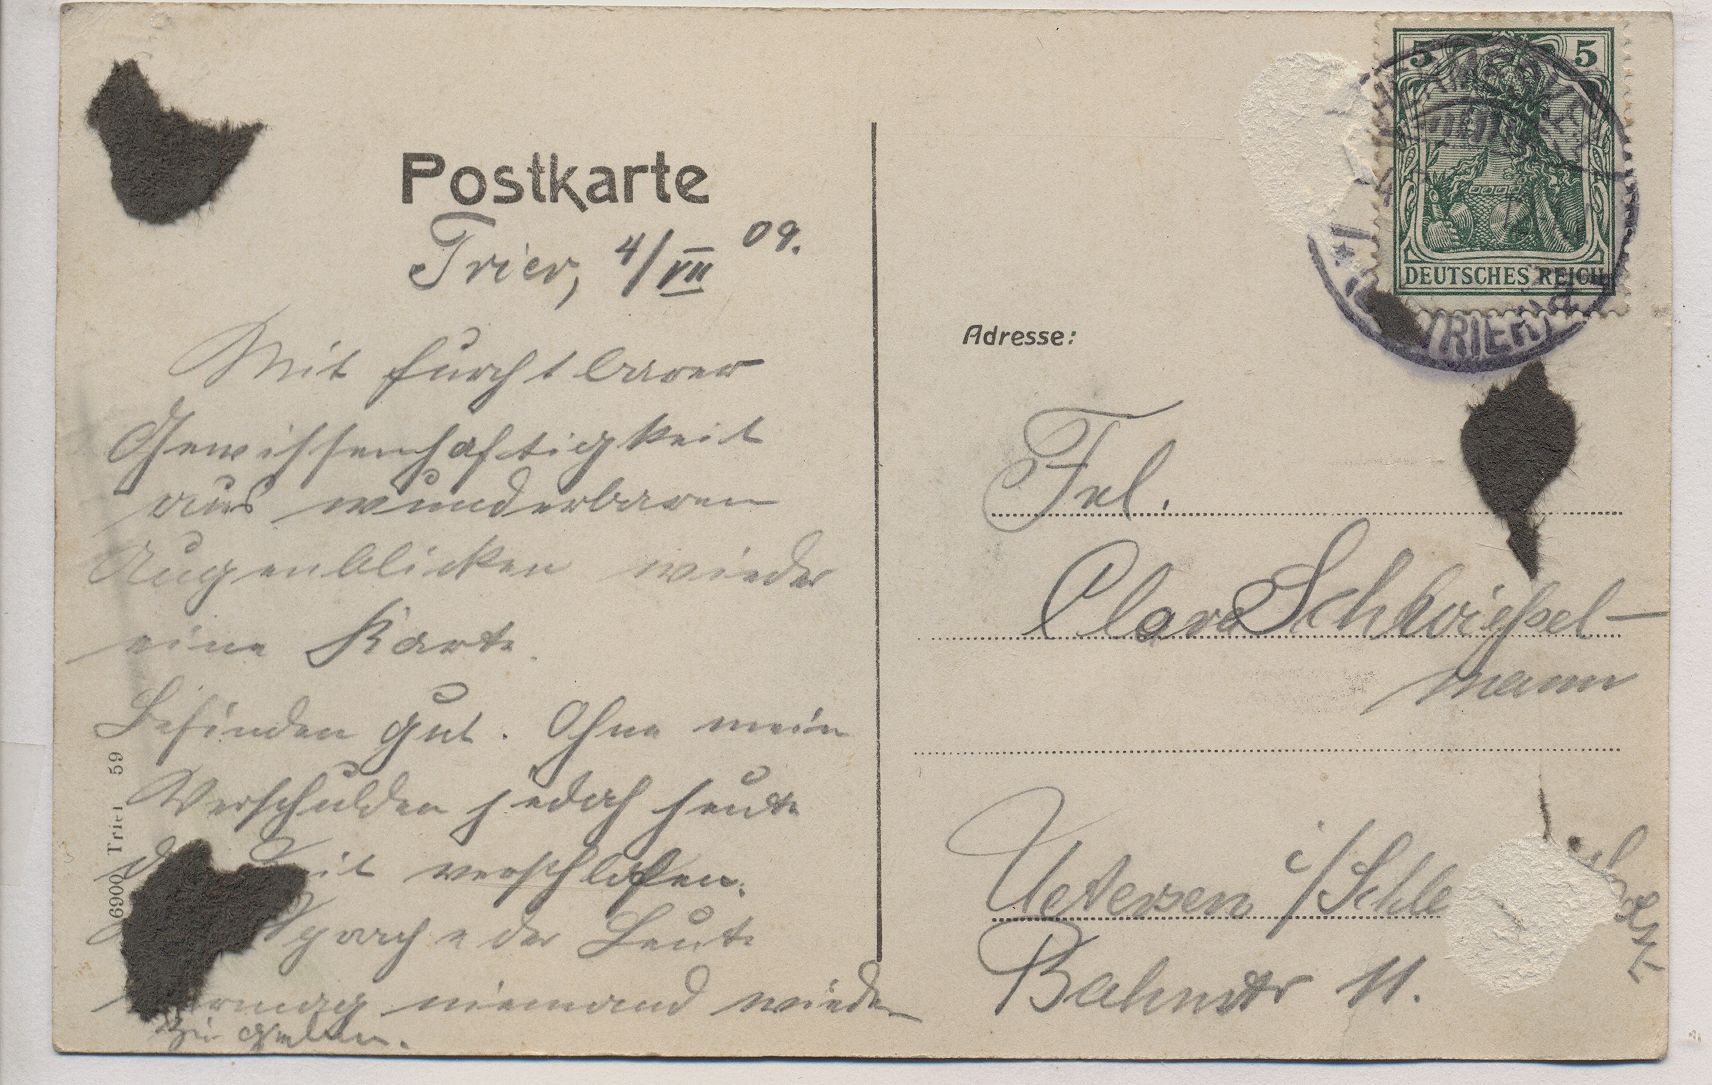 Postkarte
Trier, 4/VII 09.
Mit furchtbarer
Gewissenhaftigkeit
aus wunderbaren
Augenblicken wieder
eine Karte.
Befinden gut. Ohne mein
Verschulden jedoch heute
verschlafen.
Sprache der Leute
vermag niemand wieder
zu geben.
6900 Trier 59
5 5
DEUTSCHES REICH
TRIER
Adresse:
Frl.
Clara Schwießel-
mann
Uetersen i/Schle
Bahnstr 11.